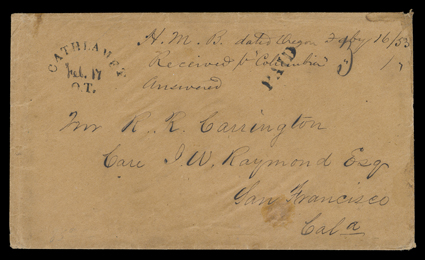 CATHLAMET
Feb. 17
O.T.
H. M. B. dated Oregon Feby 16/53
Received pr Columbia
Answered
PAID
5
Mr R. R. Carrington
Care J W. Raymond Esq
San Francisco
Cala